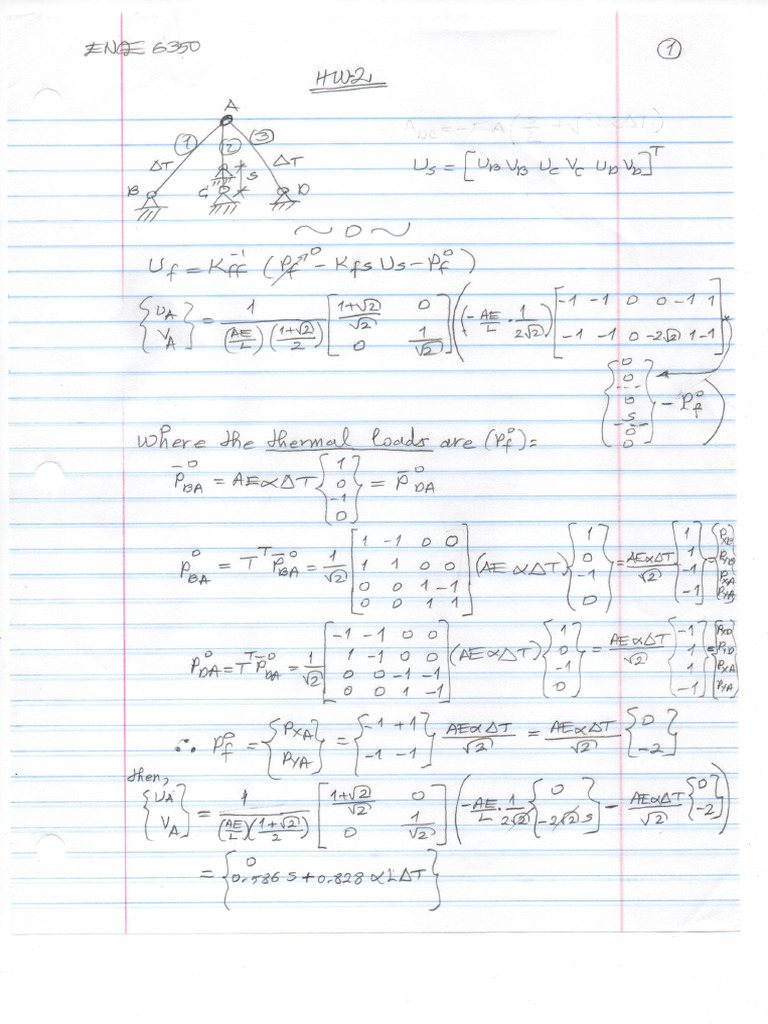 ENGE 6350 ①
HW-2
A
① ② ③
ΔT S ΔT
B C D
U_s = [U_B V_B U_C V_C U_D V_D]^T
~ 0 ~
U_f = K_ff^-1 (P_f^0 - K_fs U_s - P_f^0)
{U_A V_A} = 1/((AE/L)((1+√2)/2)) [(1+√2)/√2 0; 0 1/√2] (-AE/L · 1/(2√2) [-1 -1 0 0 -1 1; -1 -1 0 -2√2 1 -1] *
{0 0 0 S 0 0} - P_f^0)
where the thermal loads are (P_f^0):
P̄_BA^0 = AEαΔT {1 0 -1 0} = P̄_DA^0
P_BA^0 = T^T P̄_BA^0 = 1/√2 [1 -1 0 0; 1 1 0 0; 0 0 1 -1; 0 0 1 1] (AEαΔT) {1 0 -1 0} = AEαΔT/√2 {1 1 -1 -1} = {P_XB P_YB P_XA P_YA}
P_DA^0 = T^T P̄_DA^0 = 1/√2 [-1 -1 0 0; 1 -1 0 0; 0 0 -1 -1; 0 0 1 -1] (AEαΔT) {1 0 -1 0} = AEαΔT/√2 {-1 1 1 -1} = {P_XD P_YD P_XA P_YA}
∴ P_f^0 = {P_XA P_YA} = {-1+1 -1-1} AEαΔT/√2 = AEαΔT/√2 {0 -2}
then,
{U_A V_A} = 1/((AE/L)((1+√2)/2)) [(1+√2)/√2 0; 0 1/√2] (-AE/L · 1/(2√2) {0 -2√2 S} - AEαΔT/√2 {0 -2})
= {0 0.586 S + 0.828 αLΔT}